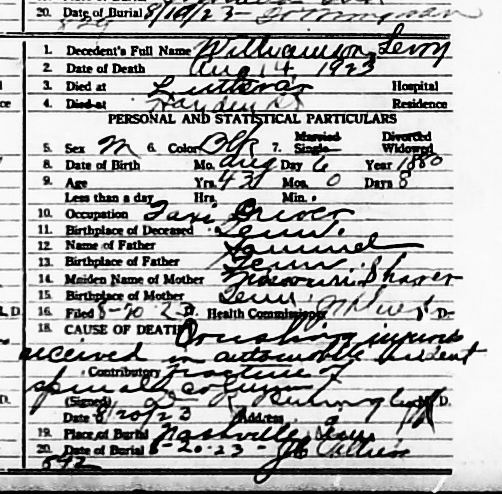 20. Date of Burial 8/10/23
1. Decedent's Full Name Williamson, Levy
2. Date of Death Aug 14 1923
3. Died at Lutheran Hospital
4. Died at Hayden St Residence
PERSONAL AND STATISTICAL PARTICULARS
5. Sex M 6. Color Blk 7. Married Single Divorced Widowed
8. Date of Birth Mo. Aug Day 6 Year 1880
9. Age Yrs. 43 Mos. 0 Days 8
Less than a day Hrs. Min.
10. Occupation Taxi Driver
11. Birthplace of Deceased Tenn.
12. Name of Father Samuel
13. Birthplace of Father Tenn.
14. Maiden Name of Mother Shaver
15. Birthplace of Mother Tenn
16. Filed 8-20-23 Health Commissioner D.
18. CAUSE OF DEATH Crushing injuries
received in automobile accident
Contributory fracture of
spinal column
(Signed) D.
Date 8/20/23 Address
19. Place of Burial Nashville, Tenn.
20. Date of Burial 8-20-23
592